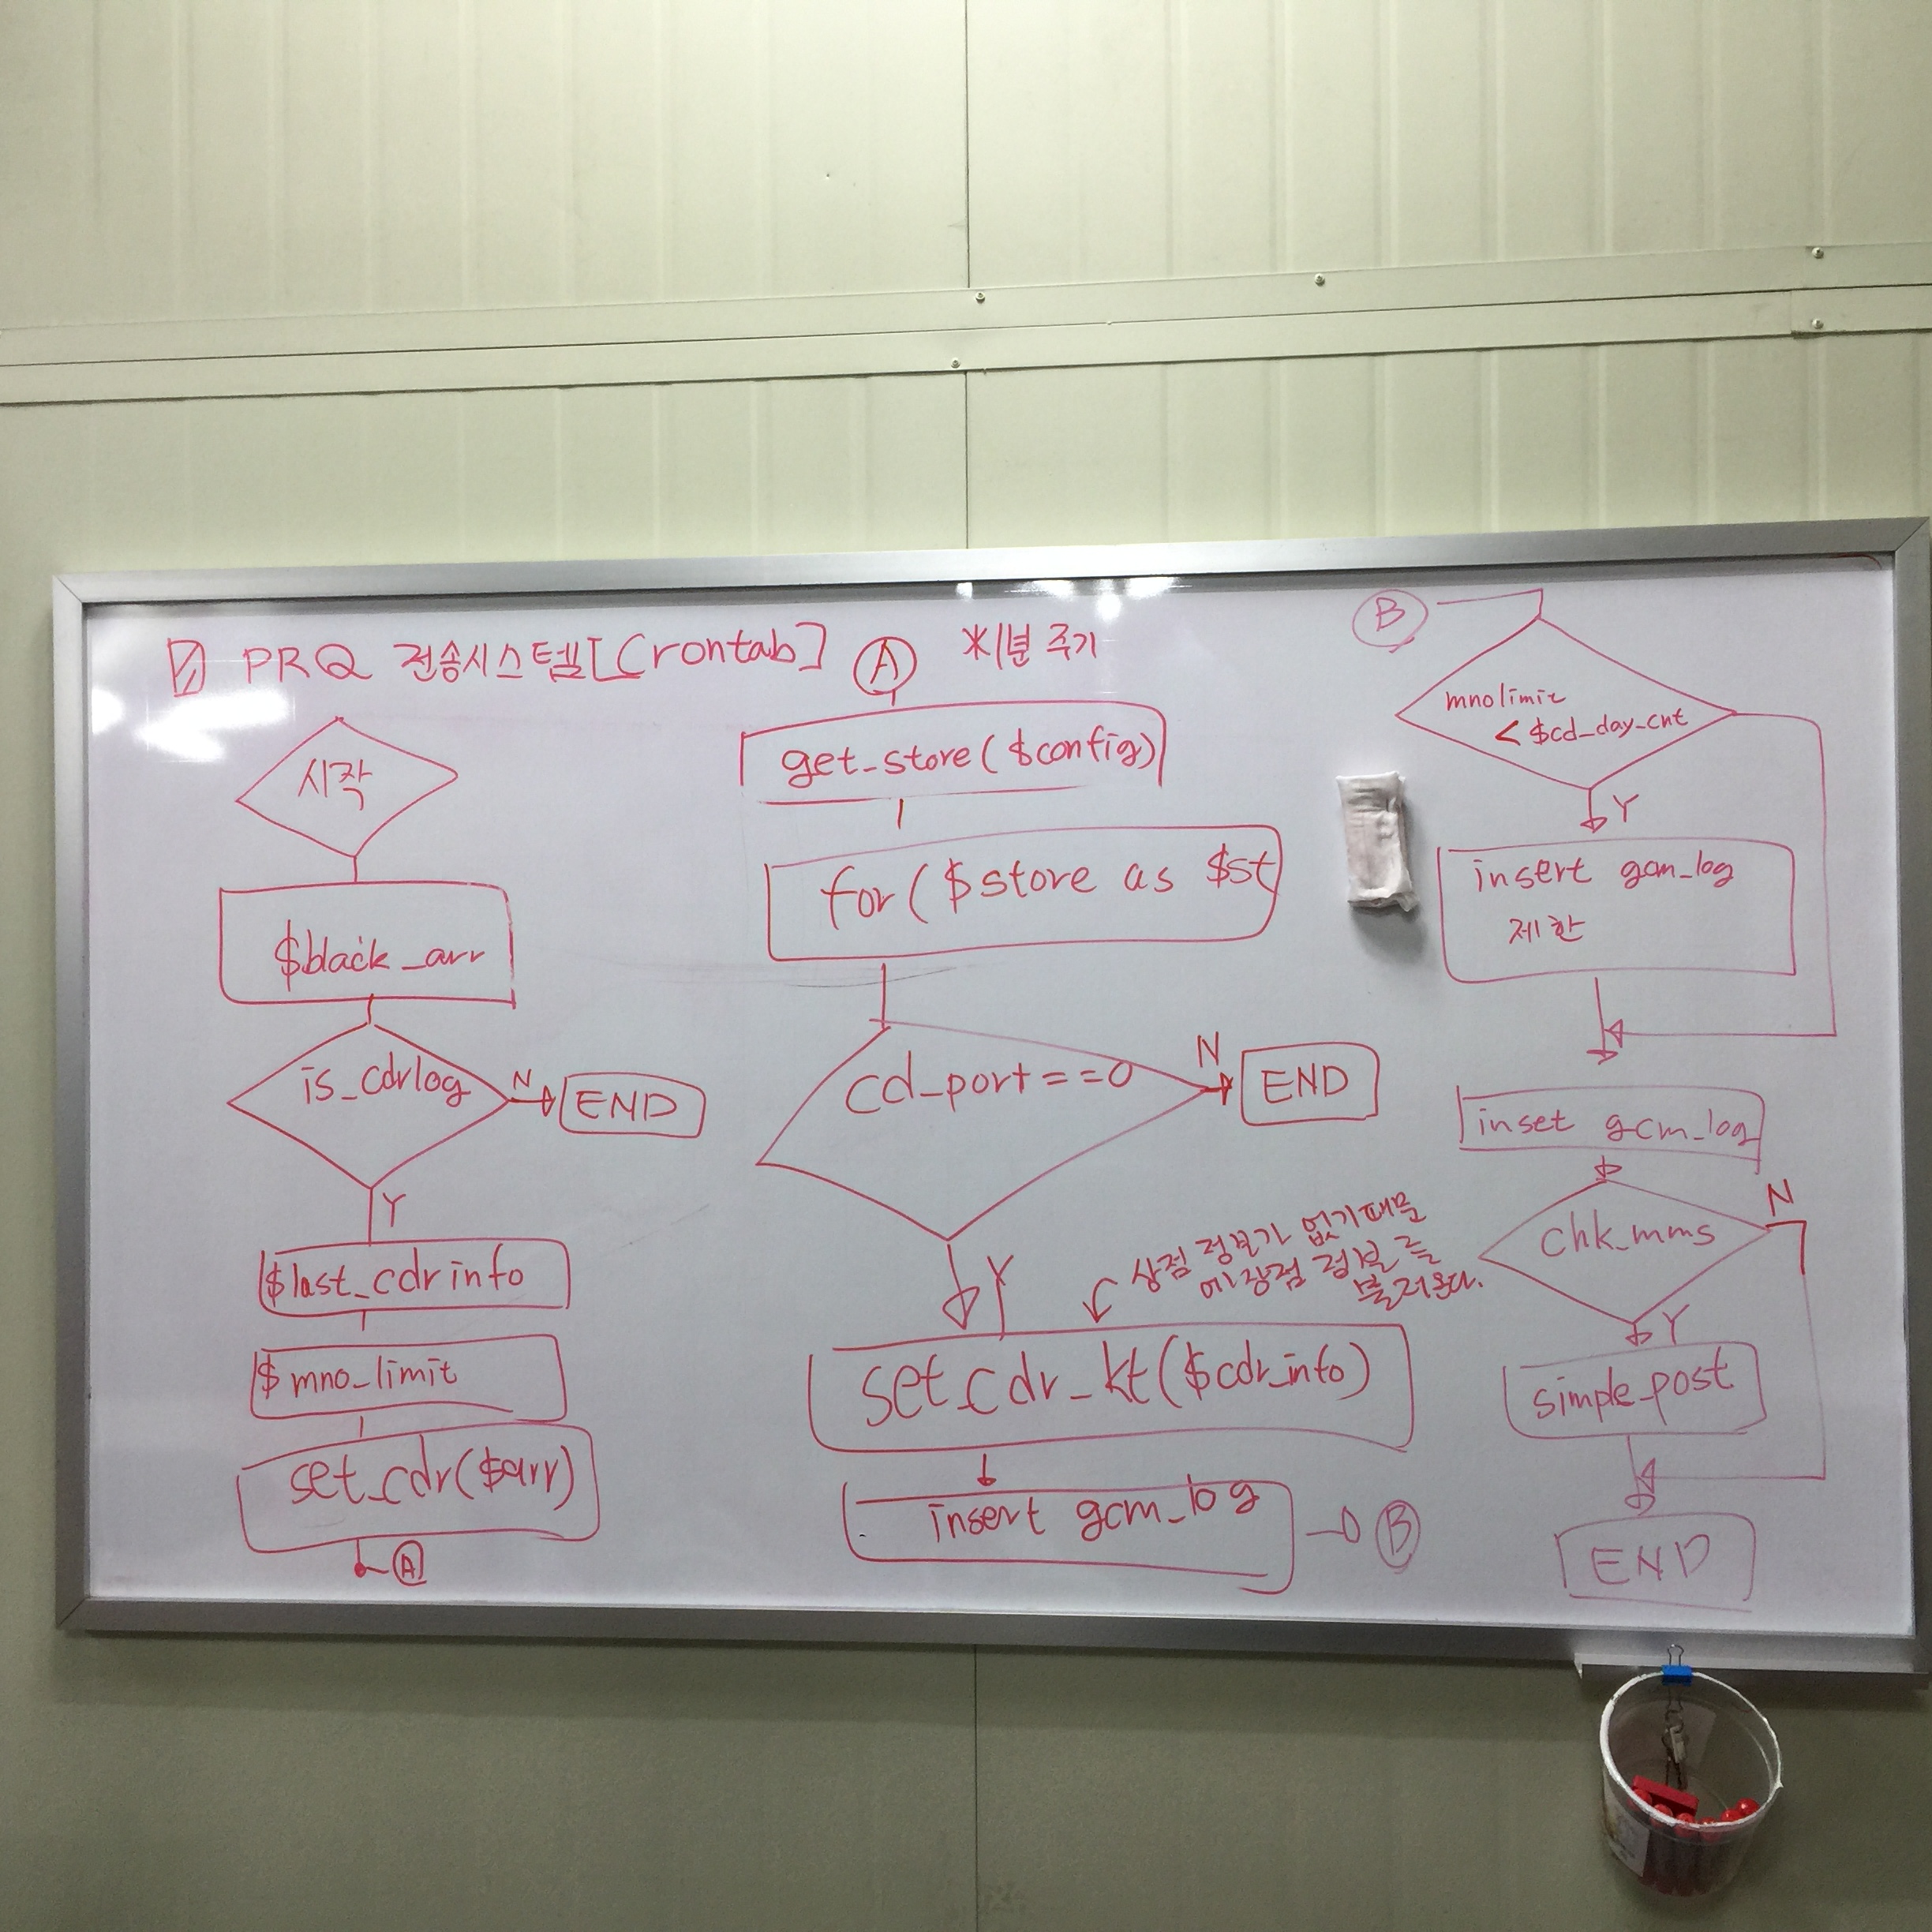 PRQ 전송시스템[Crontab]
시작
$black_arr
is_cdrlog
N
END
Y
$last_cdrinfo
$mno_limit
set_cdr($arr)
A
A
*1분 주기
get_store($config)
for($store as $st
cd_port==0
N
END
Y
상점 정보가 없기때문
에 상점 정보를
불러온다.
set_cdr_kt($cdr_info)
insert gcm_log
B
B
mnolimit
<$cd_day_cnt
Y
insert gcm_log
제한
inset gcm_log
chk_mms
N
Y
simple_post
END